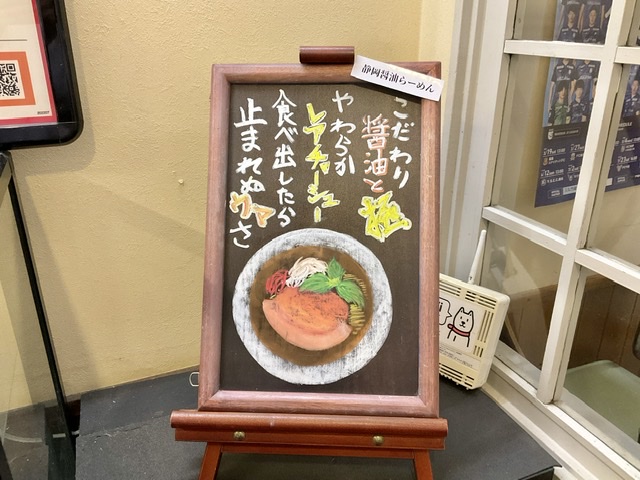 静岡醤油らーめん
こだわり
醤油と
極
やわらか
レアチャーシュー
食べ出したら
止まれぬウマさ